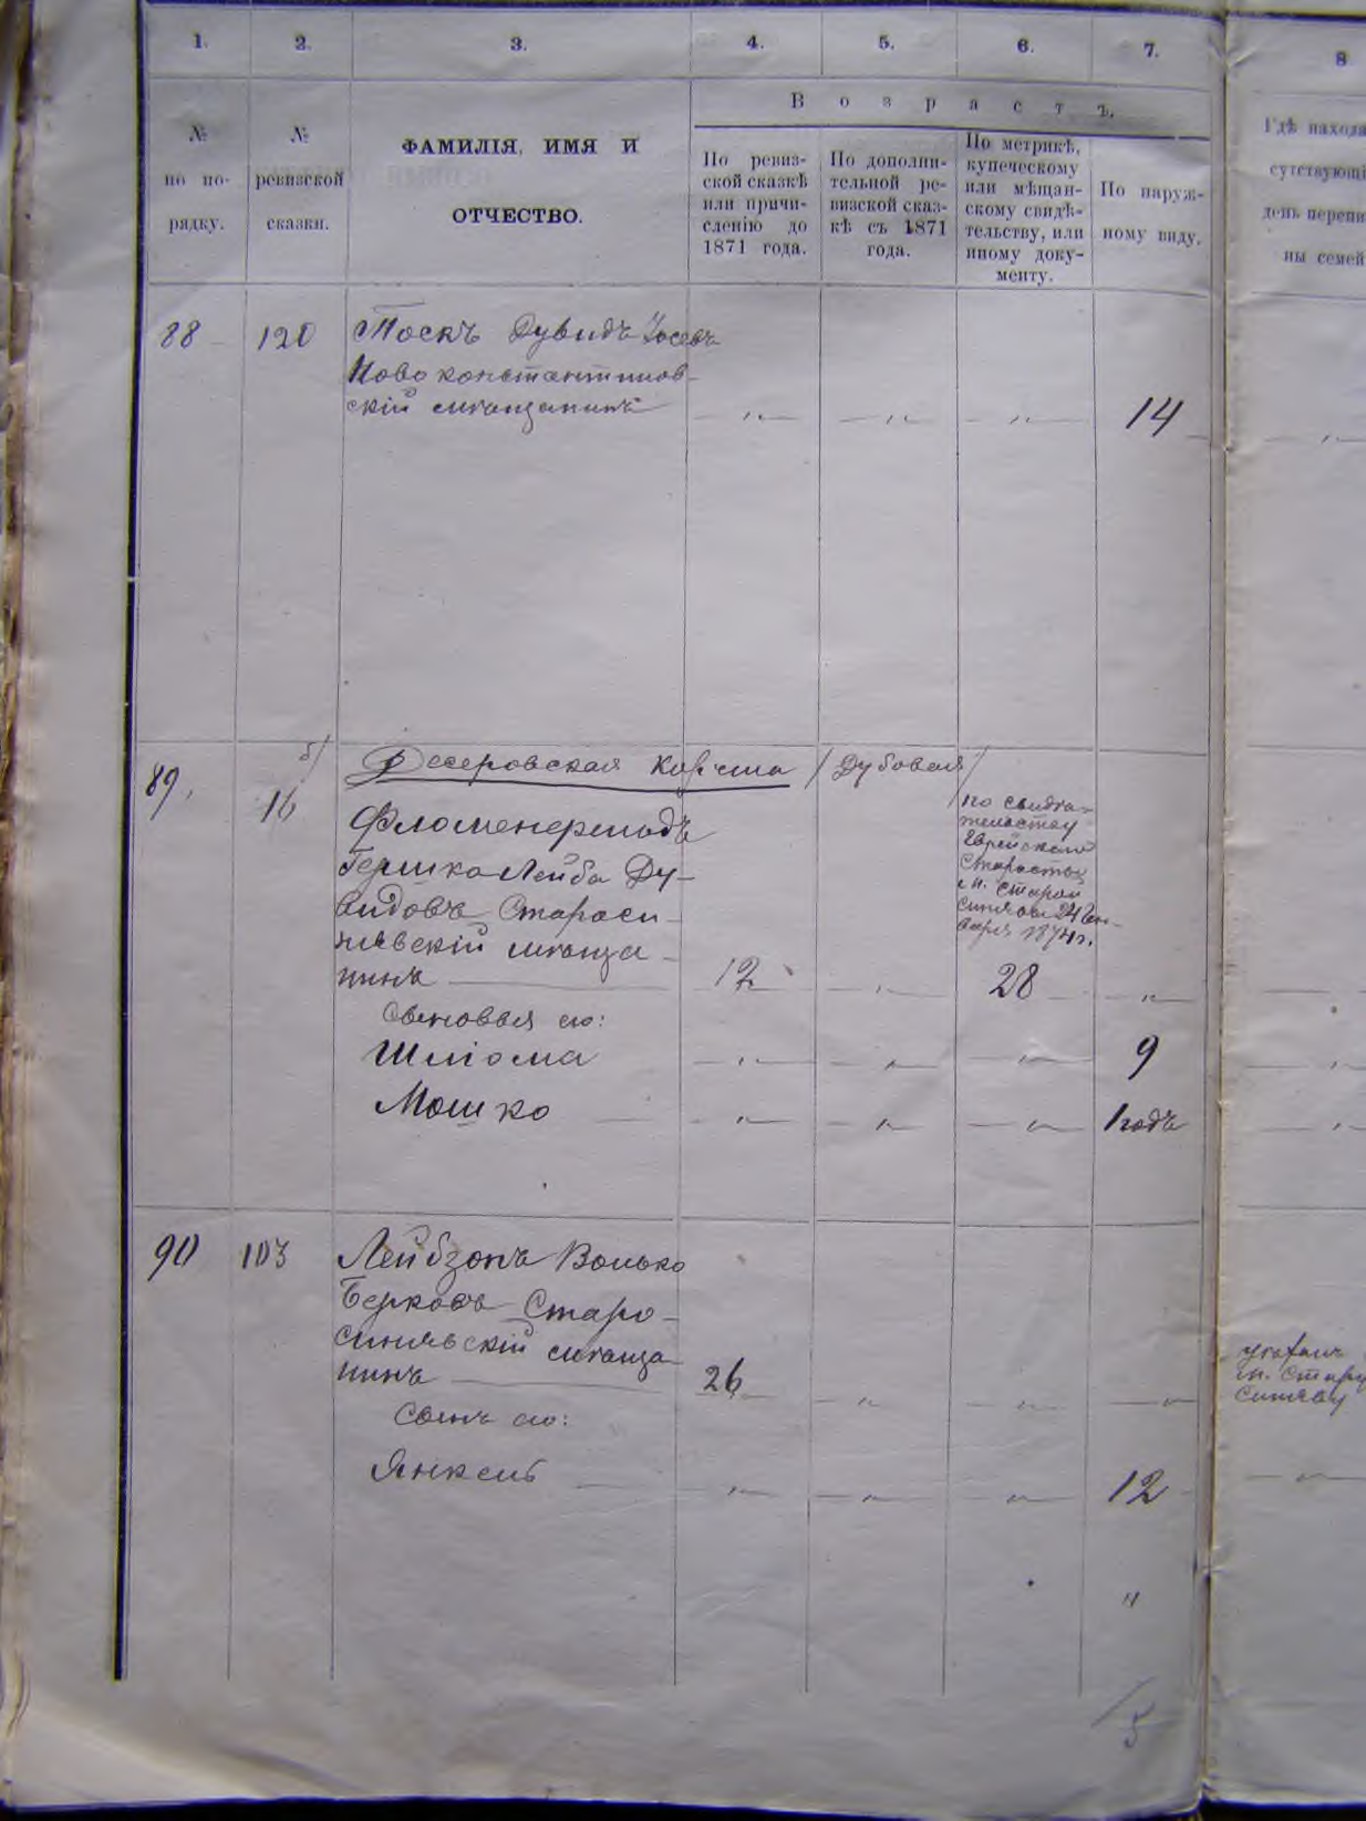 1. 2. 3. 4. 5. 6. 7. 8
№
по по-
рядку.
№
ревизской
сказки.
ФАМИЛІЯ, ИМЯ И
ОТЧЕСТВО.
Возрастъ.
По ревиз-
ской сказкѣ
или причи-
сленію до
1871 года.
По дополни-
тельной ре-
визской сказ-
кѣ съ 1871
года.
По метрикѣ,
купеческому
или мѣщан-
скому свидѣ-
тельству, или
иному доку-
менту.
По наруж-
ному виду.
Гдѣ находя
сутствующі
день перепи
ны семей
88 120 Тоскъ Дувидъ Іосевъ
Новоконстантинов-
скій мѣщанинъ 14
б/ Федеровская Корчма /Дубовая/
89. 16 Фломенерподъ
Гершко Лейба Ду-
видовъ Староси-
нявскій мѣща-
нинъ 12 28
по свидѣ-
тельству
Еврейскаго
Старосты
м. Старой
Синявы 24 Ген-
варя 1874 г.
Сыновья его:
Шліома 9
Мошко 1 годъ
90 103 Лейбзонъ Волько
Берковъ Старо-
синявскій мѣща-
нинъ 26
уехалъ
м. Стару
Синяву
Сынъ его:
Янкель 12
5